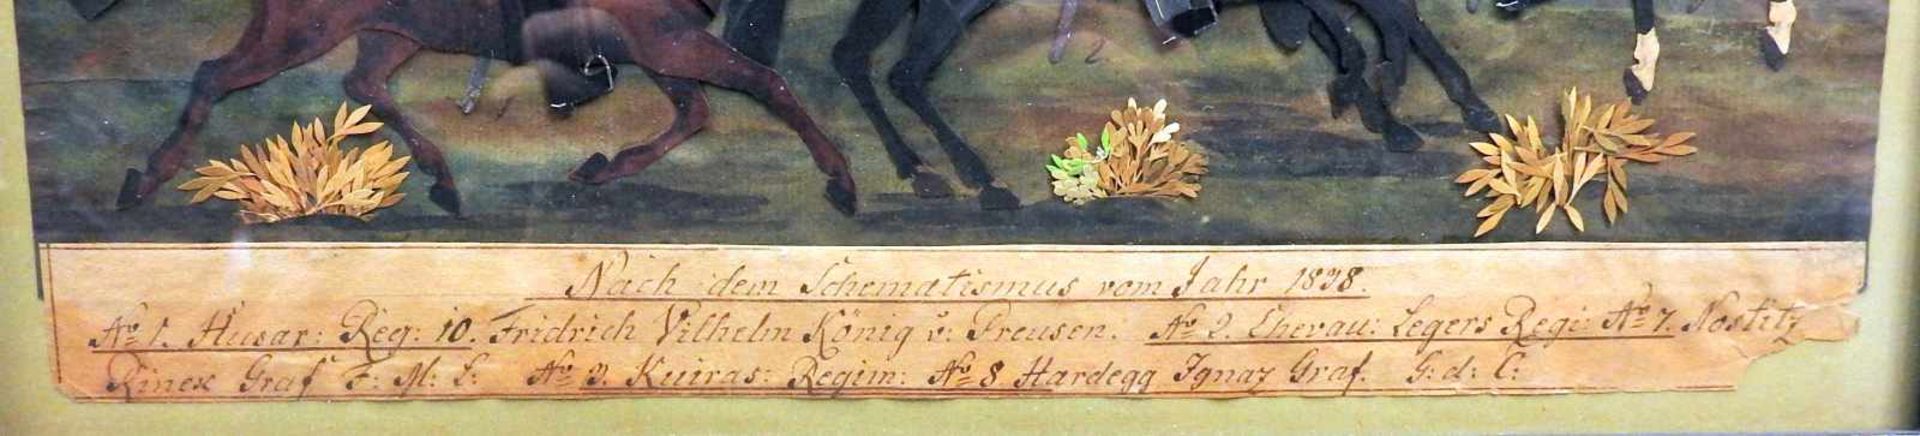 Nach dem Schematismus vom Jahr 1838.
No 1. Husar: Reg: 10. Fridrich Vilhelm König v: Preusen. No 2. Chevau: Legers Regi: No 7. Nostitz
Rinex Graf F: M: L: No 3. Kuiras: Regim: No 8 Hardegg Ignaz Graf. G: d: C: